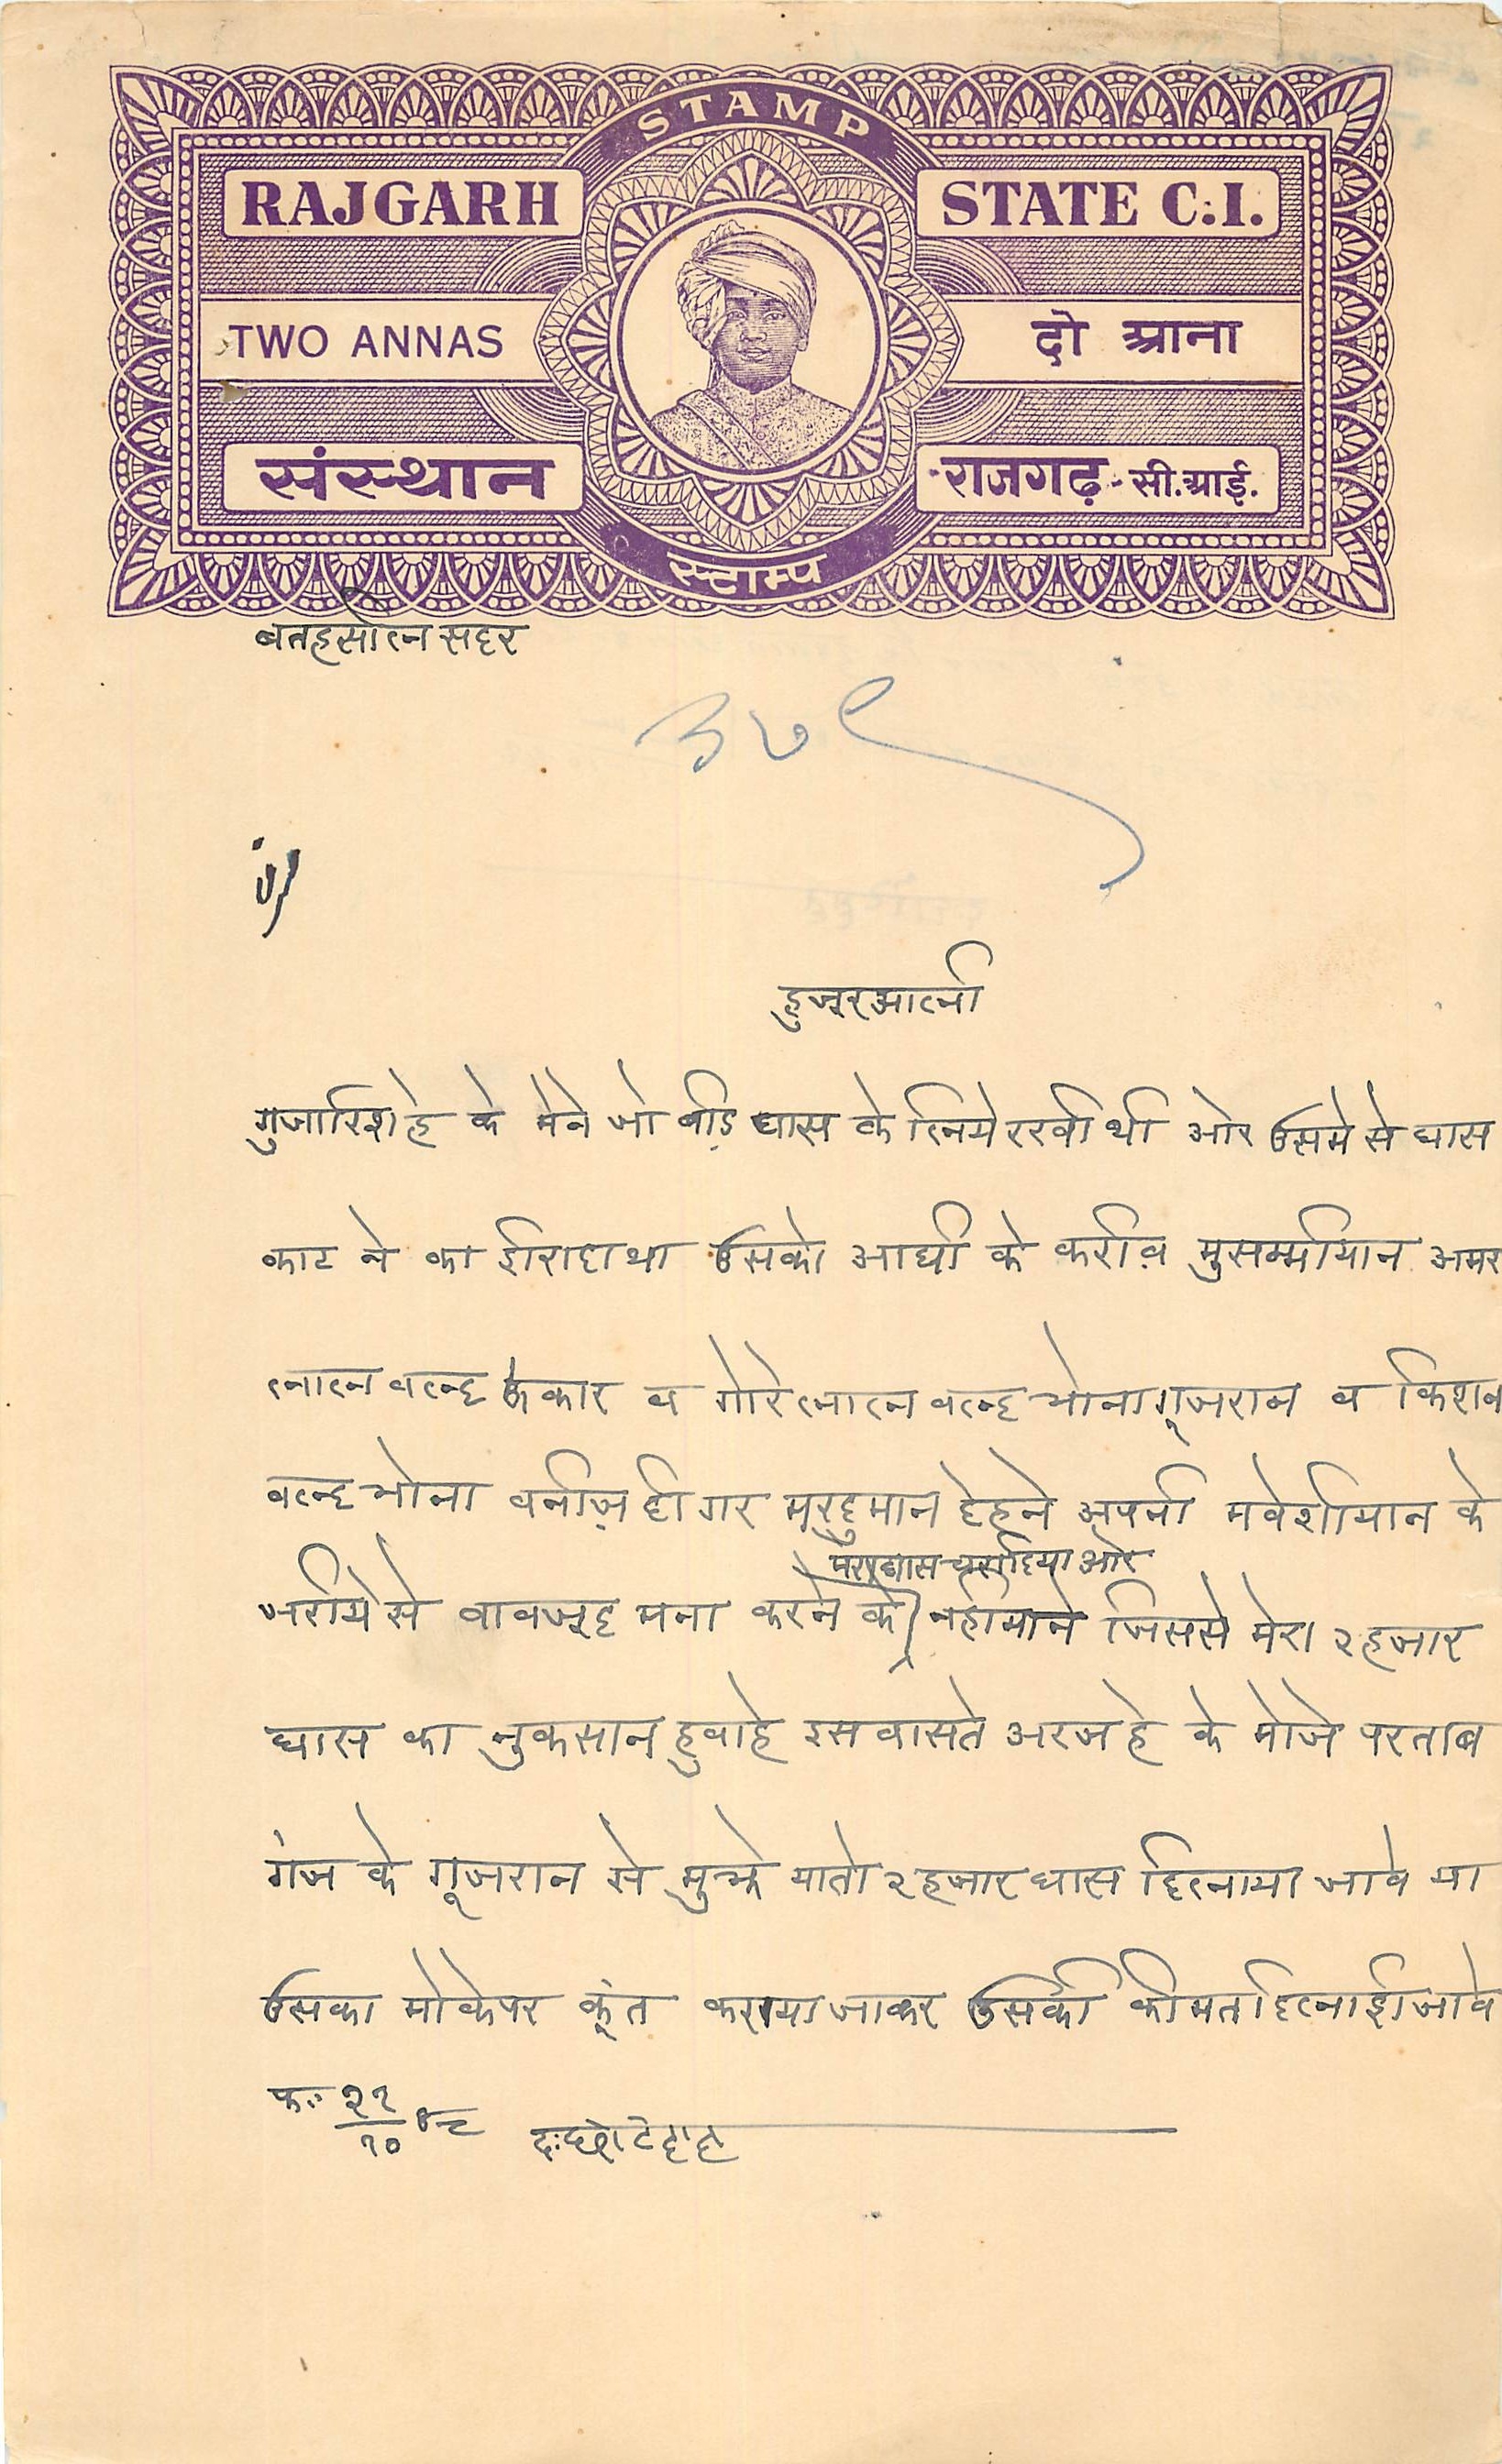 STAMP
RAJGARH STATE C.I.
TWO ANNAS दो आना
संस्थान राजगढ़ सी.आई.
स्टाम्प
बतहसील सदर
३७९
हुजुरआली
गुजारिशहे के मेने जो बीड़ घास के लिये रखी थी ओर उसमे से घास
काट ने का ईरादा था उसको आधी के करीब़ मुसम्मीयान अमर
लाल वल्द ऊकार व गोरेलाल वल्द भोना गूजरान व किशन
वल्द भोना वनीज़ दीगर मरदुमान देहने अपनी मवेशीयान के
मेरा घास चरादिया ओर
जरीये से वावजूद मना करने के नहीमाने जिससे मेरा २ हजार
घास का नुकसान हुवाहे इस वासते अरज हे के मोजे परताब
गंज के गूजरान से मुझे यातो २ हजार घास दिलाया जावे या
उसका मोकेपर कूंत कराया जाकर उसकी कीमत दिलाई जावे
फ: २१/१० ४८